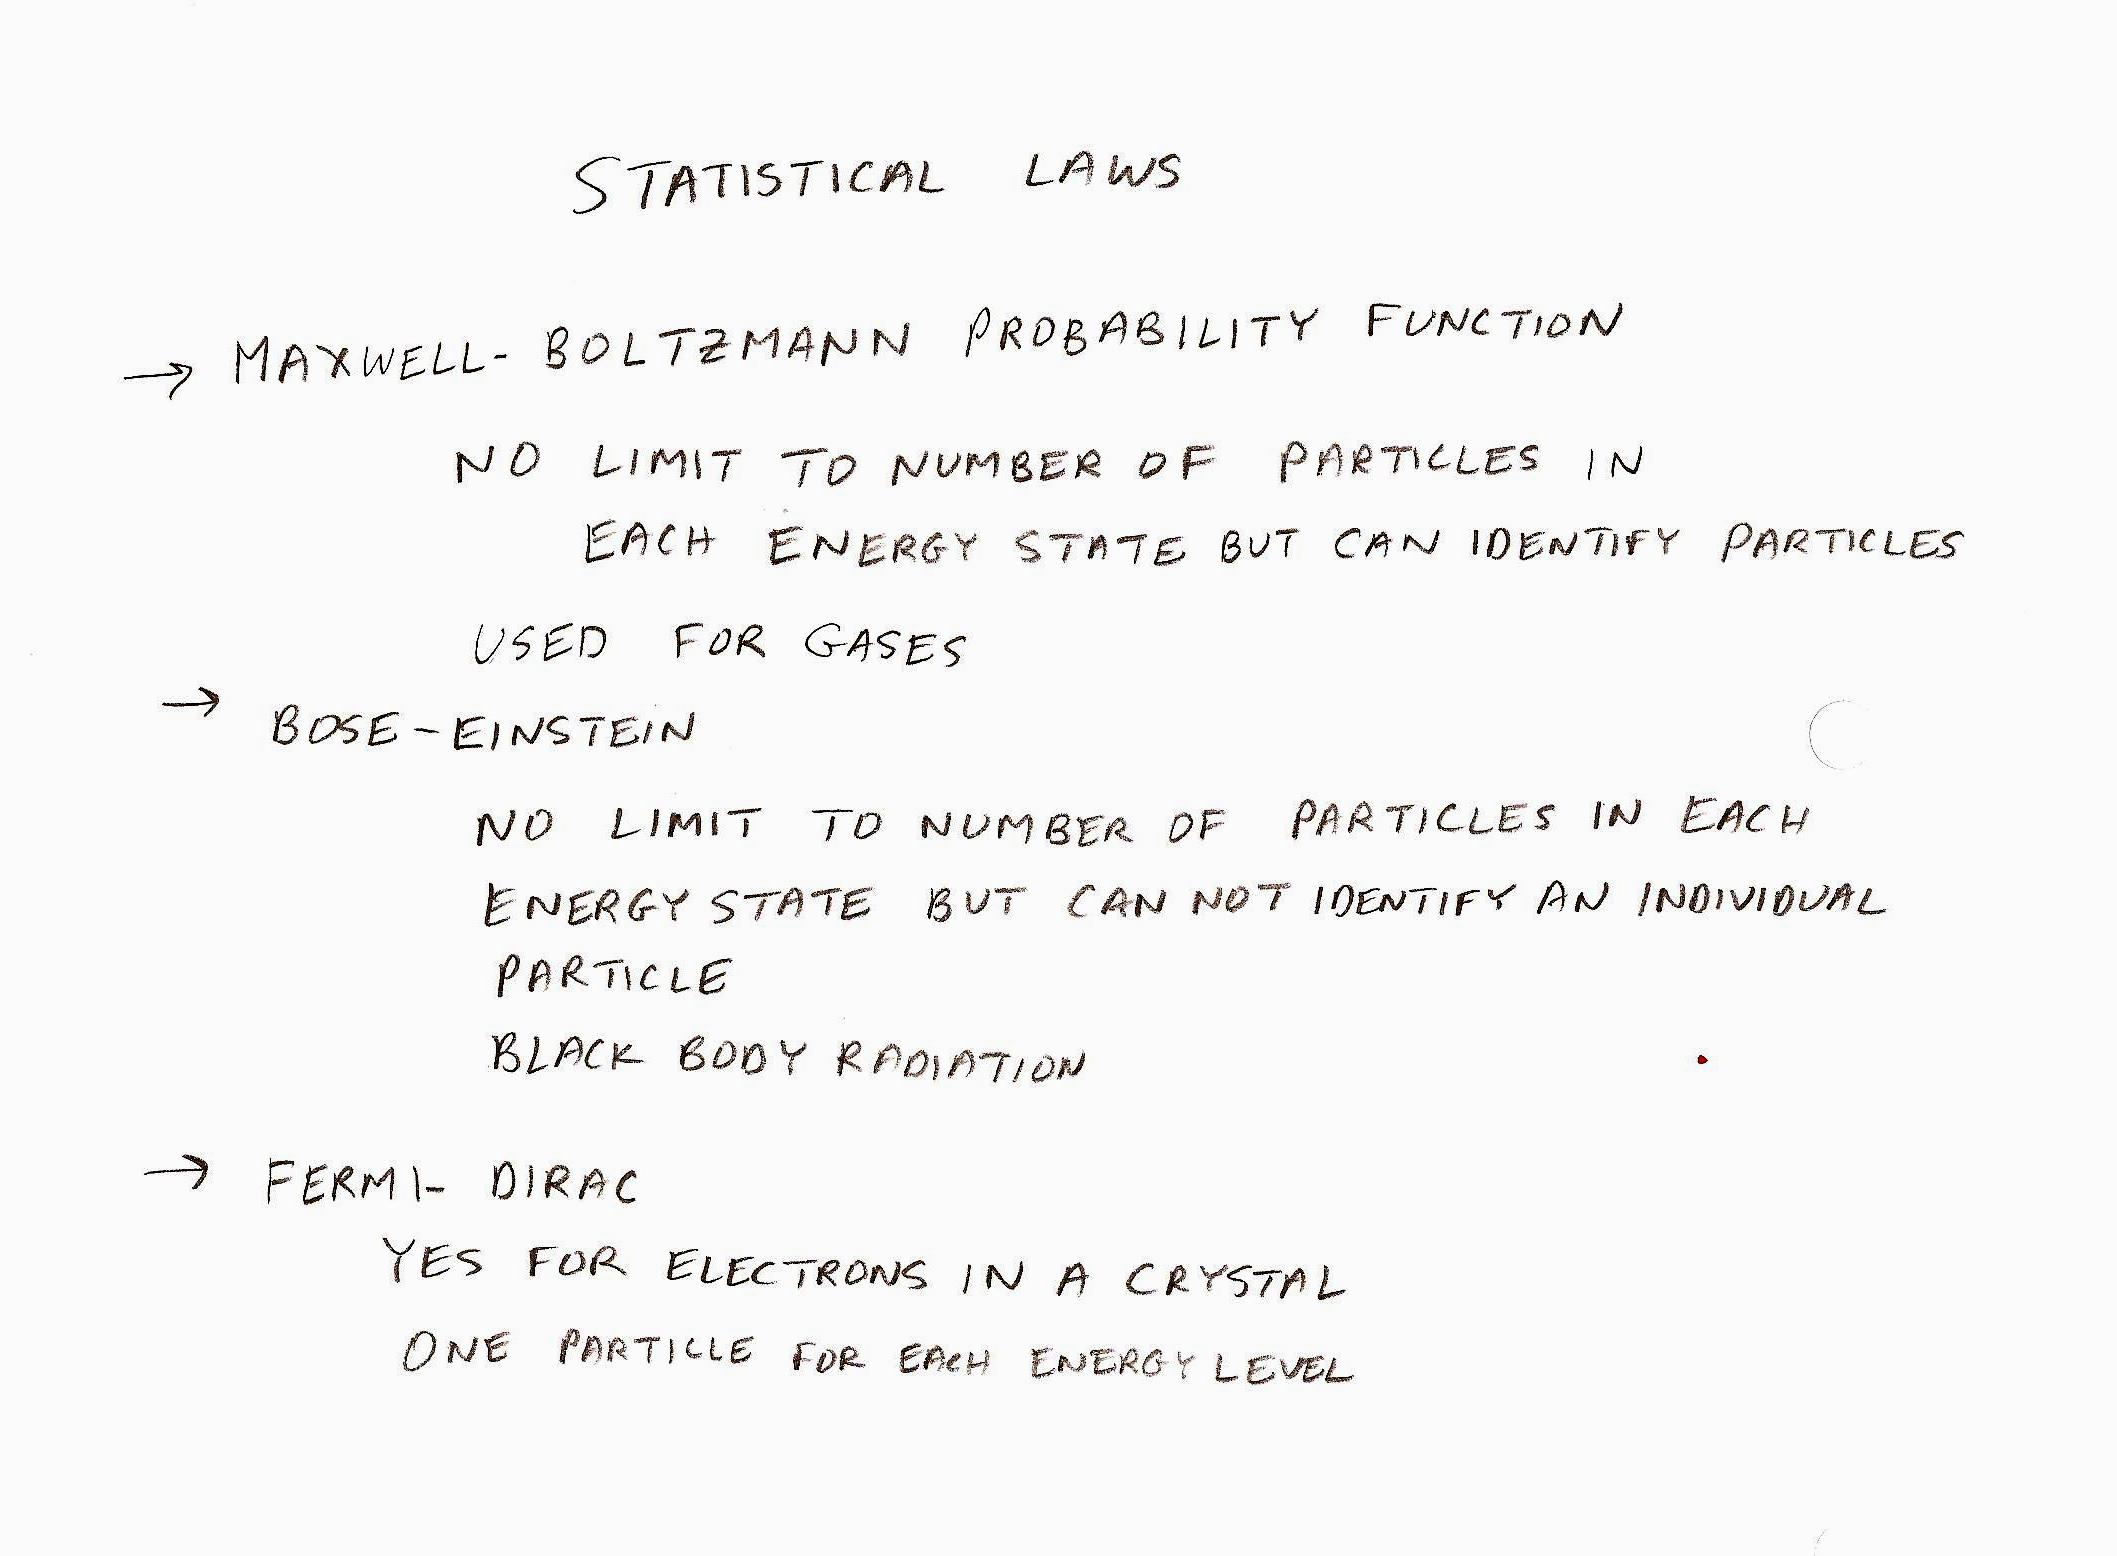 STATISTICAL LAWS
→ MAXWELL- BOLTZMANN PROBABILITY FUNCTION
NO LIMIT TO NUMBER OF PARTICLES IN
EACH ENERGY STATE BUT CAN IDENTIFY PARTICLES
USED FOR GASES
→ BOSE-EINSTEIN
NO LIMIT TO NUMBER OF PARTICLES IN EACH
ENERGY STATE BUT CAN NOT IDENTIFY AN INDIVIDUAL
PARTICLE
BLACK BODY RADIATION
→ FERMI- DIRAC
YES FOR ELECTRONS IN A CRYSTAL
ONE PARTICLE FOR EACH ENERGY LEVEL